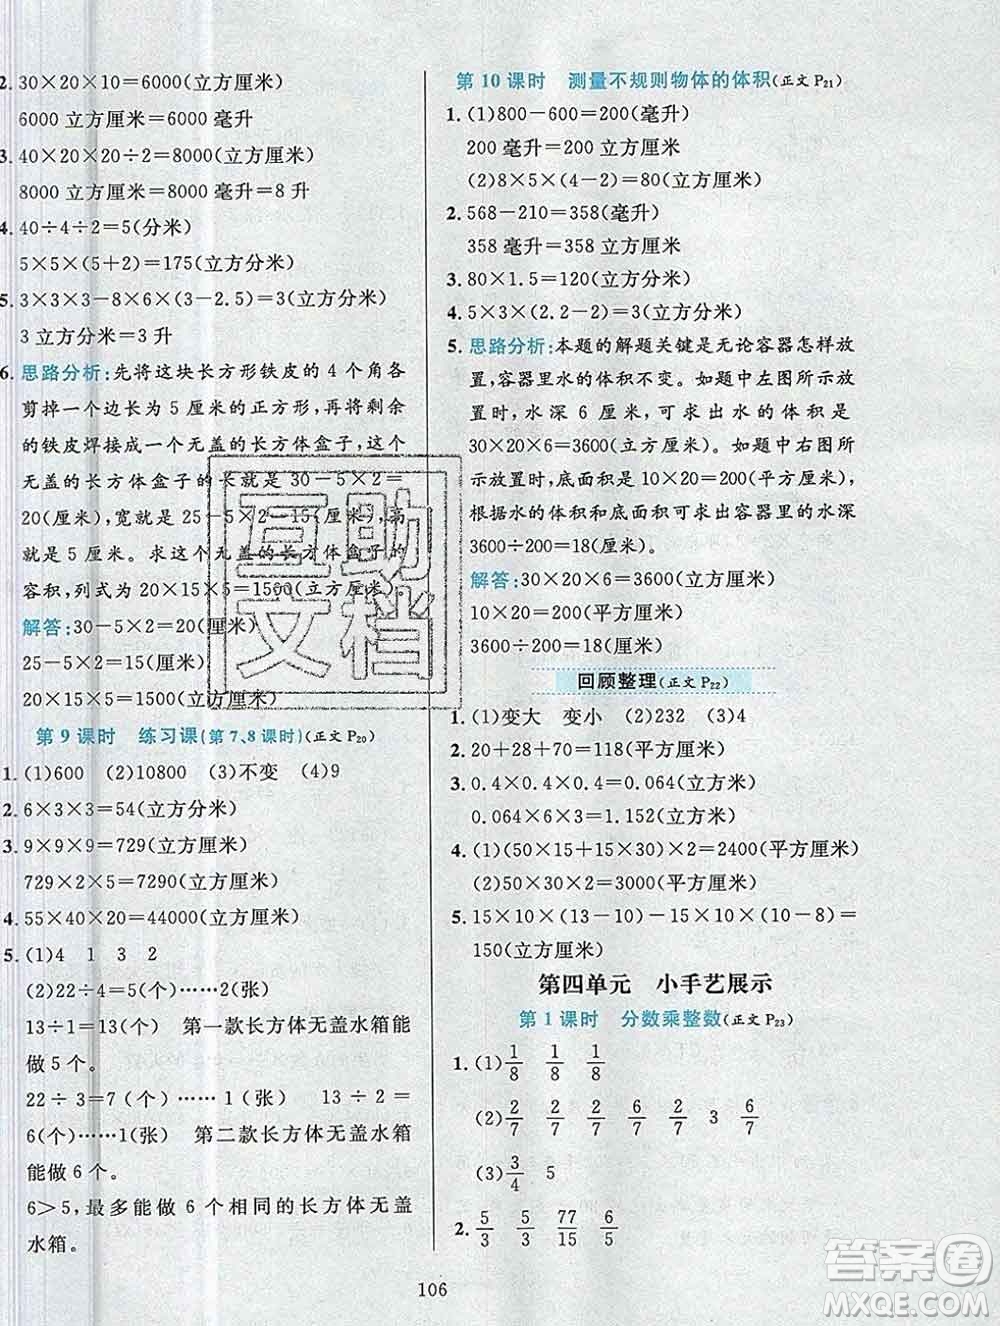 2. 30×20×10=6000(立方厘米)
6000 立方厘米=6000 毫升
3. 40×20×20÷2=8000(立方厘米)
8000 立方厘米=8000 毫升=8 升
4. 40÷4÷2=5(分米)
5×5×(5+2)=175(立方分米)
5. 3×3×3-8×6×(3-2.5)=3(立方分米)
3 立方分米=3 升
6. 思路分析:先将这块长方形铁皮的 4 个角各
剪掉一个边长为 5 厘米的正方形,再将剩余
的铁皮焊接成一个无盖的长方体盒子,这个
无盖的长方体盒子的长就是 30-5×2=
20(厘米),宽就是 25-5×2=15(厘米),高
就是 5 厘米。求这个无盖的长方体盒子的
容积,列式为 20×15×5=1500(立方厘米)。
解答:30-5×2=20(厘米)
25-5×2=15(厘米)
20×15×5=1500(立方厘米)
第 9 课时 练习课(第 7、8 课时)(正文 P20)
1. (1)600 (2)10800 (3)不变 (4)9
2. 6×3×3=54(立方分米)
3. 9×9×9=729(立方厘米)
729×2×5=7290(立方厘米)
4. 55×40×20=44000(立方厘米)
5. (1)4 1 3 2
(2)22÷4=5(个)……2(张)
13÷1=13(个) 第一款长方体无盖水箱能
做 5 个。
22÷3=7(个)……1(张) 13÷2=
6(个)……1(张) 第二款长方体无盖水箱
能做 6 个。
6>5,最多能做 6 个相同的长方体无盖
水箱。
第 10 课时 测量不规则物体的体积(正文 P21)
1. (1)800-600=200(毫升)
200 毫升=200 立方厘米
(2)8×5×(4-2)=80(立方厘米)
2. 568-210=358(毫升)
358 毫升=358 立方厘米
3. 80×1.5=120(立方分米)
4. 5×3×(2.2-2)=3(立方分米)
5. 思路分析:本题的解题关键是无论容器怎样放
置,容器里水的体积不变。如题中左图所示放
置时,水深 6 厘米,可求出水的体积是
30×20×6=3600(立方厘米)。如题中右图所
示放置时,底面积是 10×20=200(平方厘米),
根据水的体积和底面积可求出容器里的水深
3600÷200=18(厘米)。
解答:30×20×6=3600(立方厘米)
10×20=200(平方厘米)
3600÷200=18(厘米)
回顾整理(正文 P22)
1. (1)变大 变小 (2)232 (3)4
2. 20+28+70=118(平方厘米)
3. 0.4×0.4×0.4=0.064(立方米)
0.064×6×3=1.152(立方米)
4. (1)(50×15+15×30)×2=2400(平方厘米)
(2)50×30×2=3000(平方厘米)
5. 15×10×(13-10)-15×10×(10-8)=
150(立方厘米)
第四单元 小手艺展示
第 1 课时 分数乘整数(正文 P23)
1. (1)1/8 1/8 1/8
(2)2/7 2/7 2/7 6/7 2/7 3 6/7
(3)3/4 5
2. 5/3 5/3 77/15 6/5
106
互助
文档
答案圈
MXQE.COM